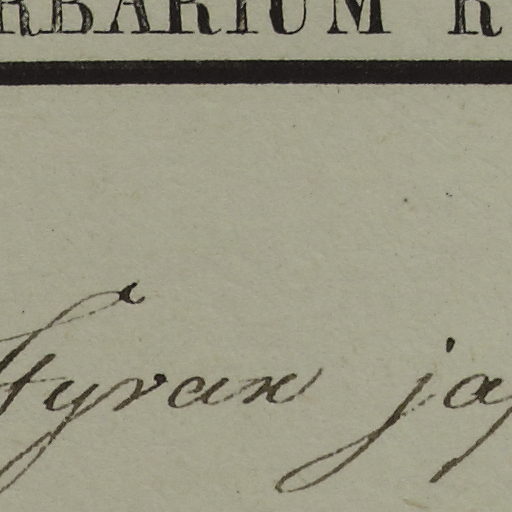 RBARIUM R
Styrax jap